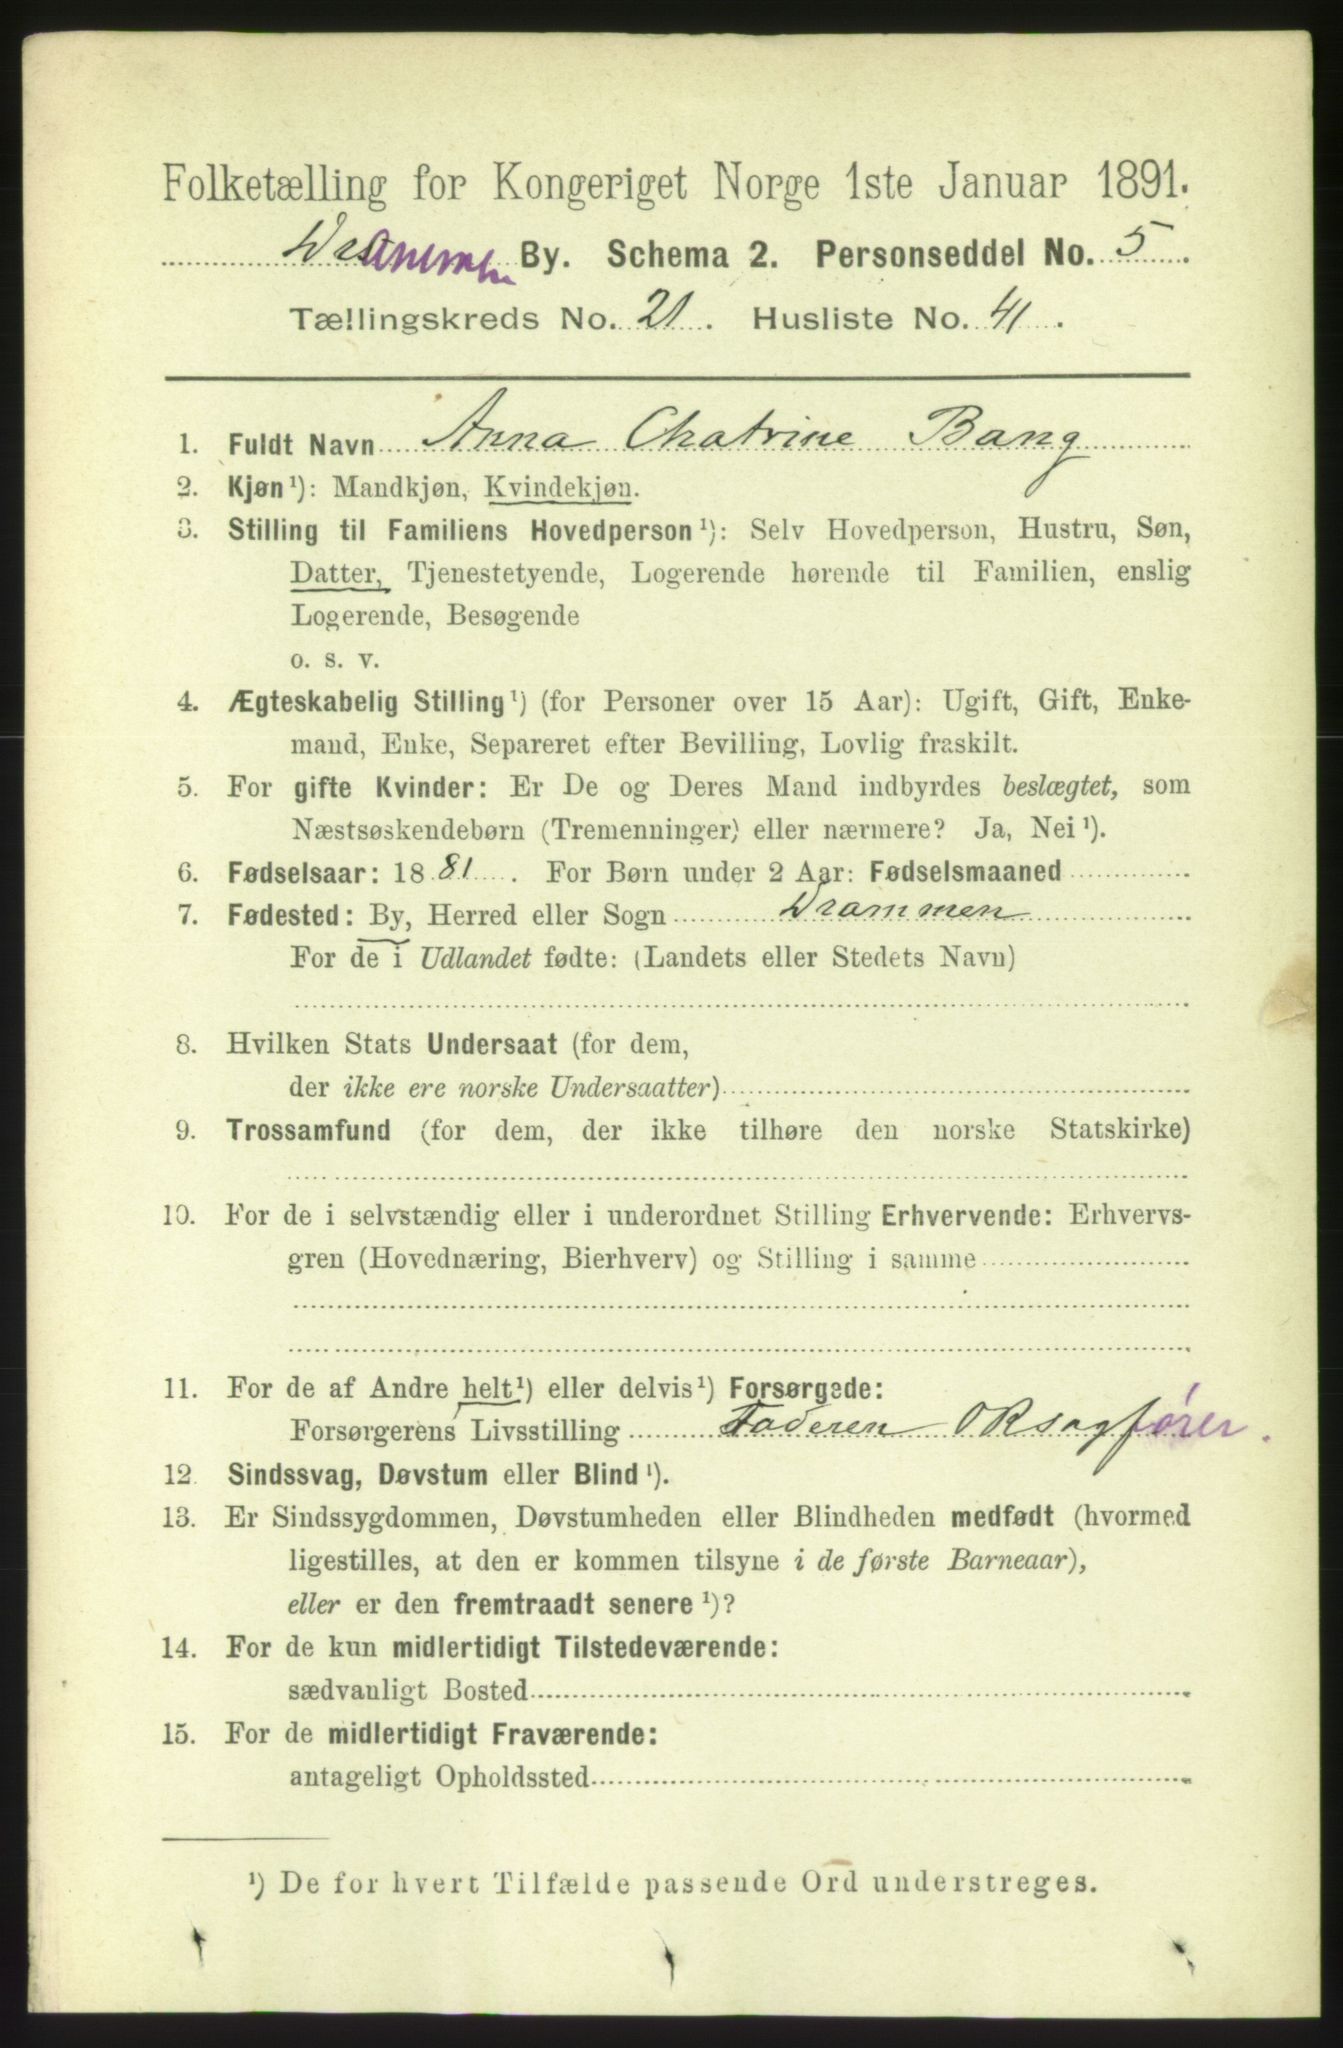 Folketælling for Kongeriget Norge 1ste Januar 1891.
Drammen By. Schema 2. Personseddel No. 5.
Tællingskreds No. 21. Husliste No. 41.
1. Fuldt Navn Anna Chatrine Bang
2. Kjøn¹): Mandkjøn, Kvindekjøn.
3. Stilling til Familiens Hovedperson¹): Selv Hovedperson, Hustru, Søn,
Datter, Tjenestetyende, Logerende hørende til Familien, enslig
Logerende, Besøgende
o. s. v.
4. Ægteskabelig Stilling¹) (for Personer over 15 Aar): Ugift, Gift, Enke-
mand, Enke, Separeret efter Bevilling, Lovlig fraskilt.
5. For gifte Kvinder: Er De og Deres Mand indbyrdes beslægtet, som
Næstsøskendebørn (Tremenninger) eller nærmere? Ja, Nei¹).
6. Fødselsaar: 1881. For Børn under 2 Aar: Fødselsmaaned
7. Fødested: By, Herred eller Sogn Drammen
For de i Udlandet fødte: (Landets eller Stedets Navn)
8. Hvilken Stats Undersaat (for dem,
der ikke ere norske Undersaatter)
9. Trossamfund (for dem, der ikke tilhøre den norske Statskirke)
10. For de i selvstændig eller i underordnet Stilling Erhvervende: Erhvervs-
gren (Hovednæring, Bierhverv) og Stilling i samme
11. For de af Andre helt¹) eller delvis¹) Forsørgede:
Forsørgerens Livsstilling Faderen ORsagfører.
12 Sindssvag, Døvstum eller Blind¹).
13. Er Sindssygdommen, Døvstumheden eller Blindheden medfødt (hvormed
ligestilles, at den er kommen tilsyne i de første Barneaar),
eller er den fremtraadt senere¹)?
14. For de kun midlertidigt Tilstedeværende:
sædvanligt Bosted
15. For de midlertidigt Fraværende:
antageligt Opholdssted
¹) De for hvert Tilfælde passende Ord understreges.